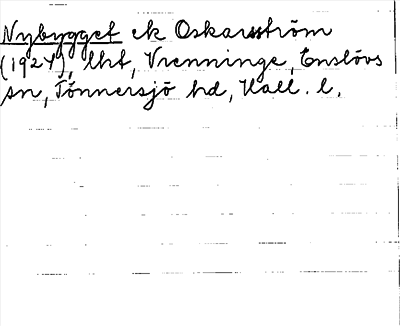 Nybygget ek Oskarsström
(1924), lht, Vrenninge, Enslövs
sn, Tönnersjö hd, Hall. l.